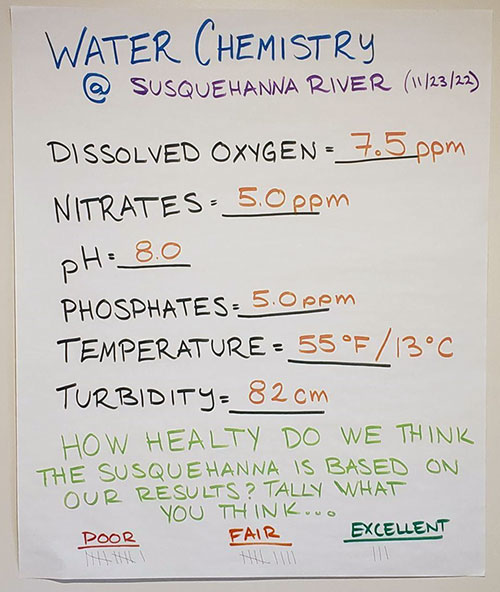 WATER CHEMISTRY
@ SUSQUEHANNA RIVER (11/23/22)
DISSOLVED OXYGEN = 7.5 ppm
NITRATES = 5.0 ppm
pH = 8.0
PHOSPHATES = 5.0 ppm
TEMPERATURE = 55°F / 13°C
TURBIDITY = 82 cm
HOW HEALTY DO WE THINK
THE SUSQUEHANNA IS BASED ON
OUR RESULTS? TALLY WHAT
YOU THINK...
POOR FAIR EXCELLENT